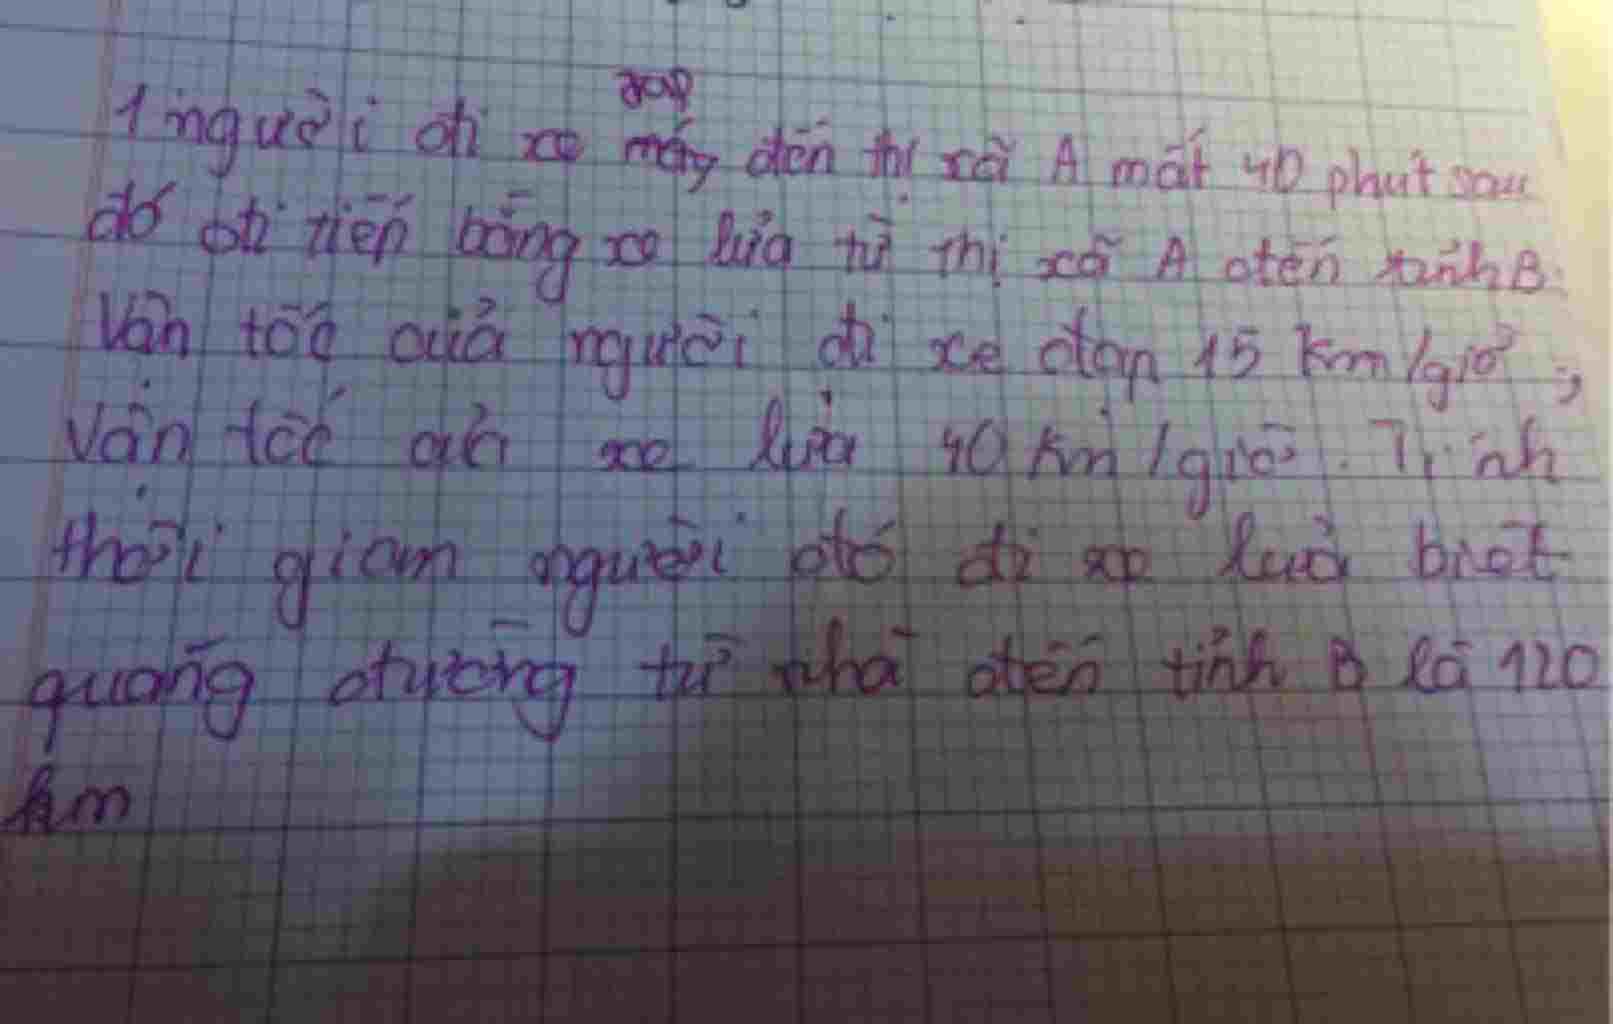 1 người đi xe máy đến thị xã A mất 40 phút sau
đạp
đó đi tiếp bằng xe lửa từ thị xã A đến tỉnh B.
Vận tốc của người đi xe đạp 15 km/giờ,
Vận tốc của xe lửa 40 km/giờ. Tính
thời gian người đó đi xe lửa biết
quãng đường từ nhà đến tỉnh B là 120
km